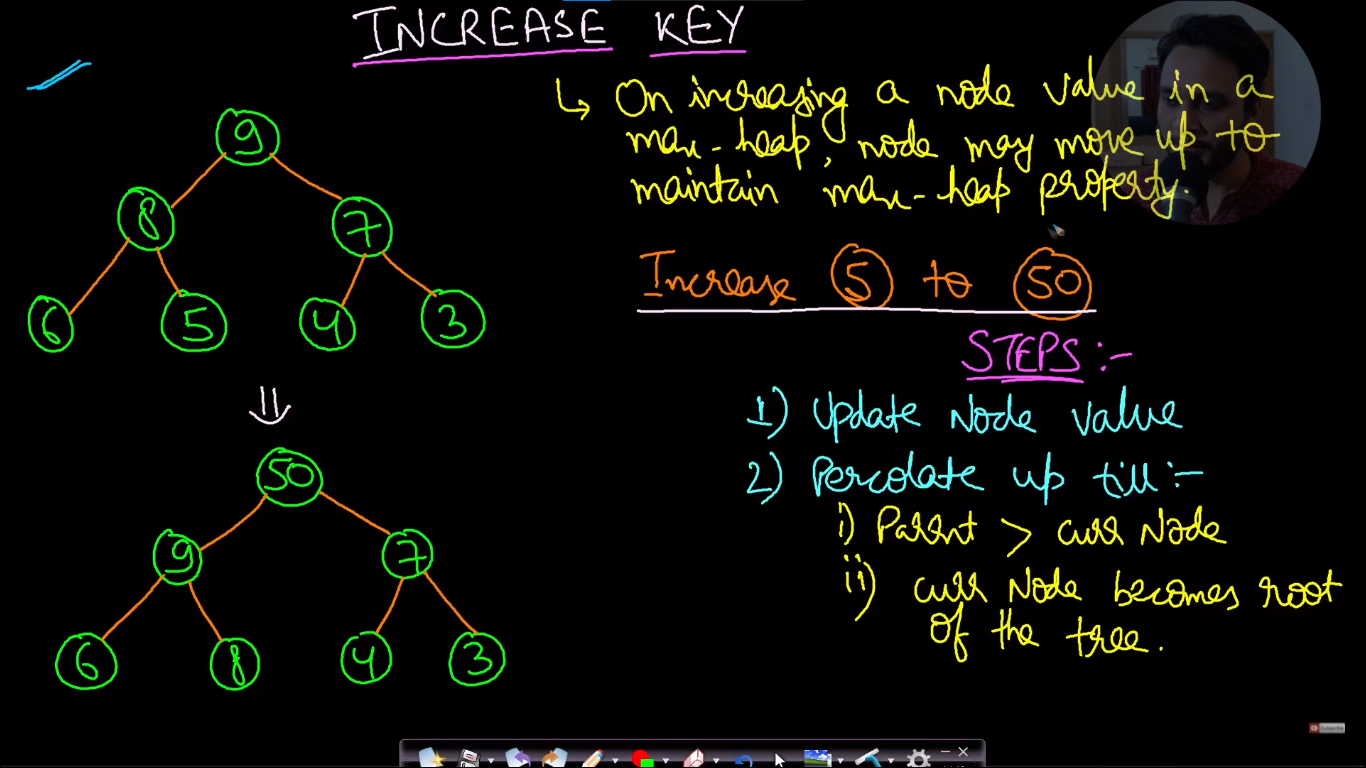 INCREASE KEY
↳ On increasing a node value in a
max-heap, node may move up to
maintain max-heap property.
Increase 5 to 50
STEPS :-
1) Update Node value
2) Percolate up till :-
i) Parent > curr Node
ii) curr Node becomes root
of the tree.
9
8 7
6 5 4 3
50
9 7
6 8 4 3
Subscribe